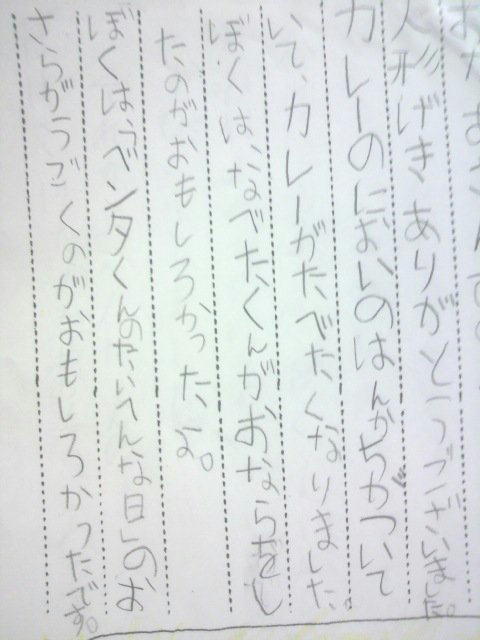 人形げきありがとうございました。
カレーのにおいのはんかちがついて
いて、カレーがたべたくなりました。
ぼくは、なべたくんがおならをし
たのがおもしろかったよ。
ぼくは、「ベンタくんのたいへんな日」のお
さらがうごくのがおもしろかったです。